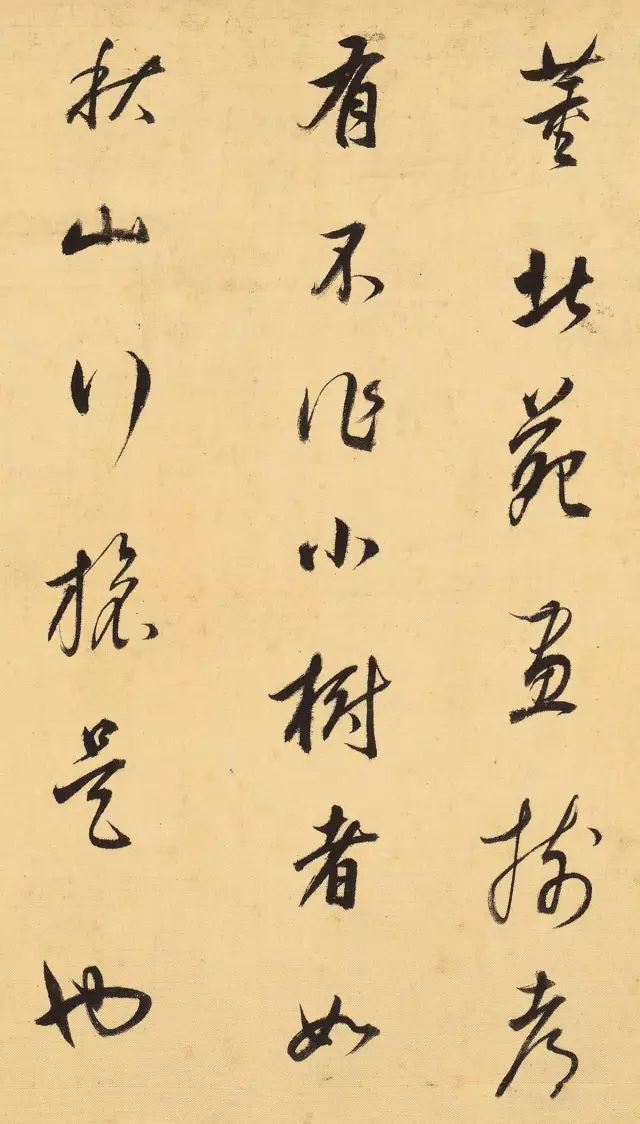 董北苑畫樹
有不作小樹者如
秋山行旅是也